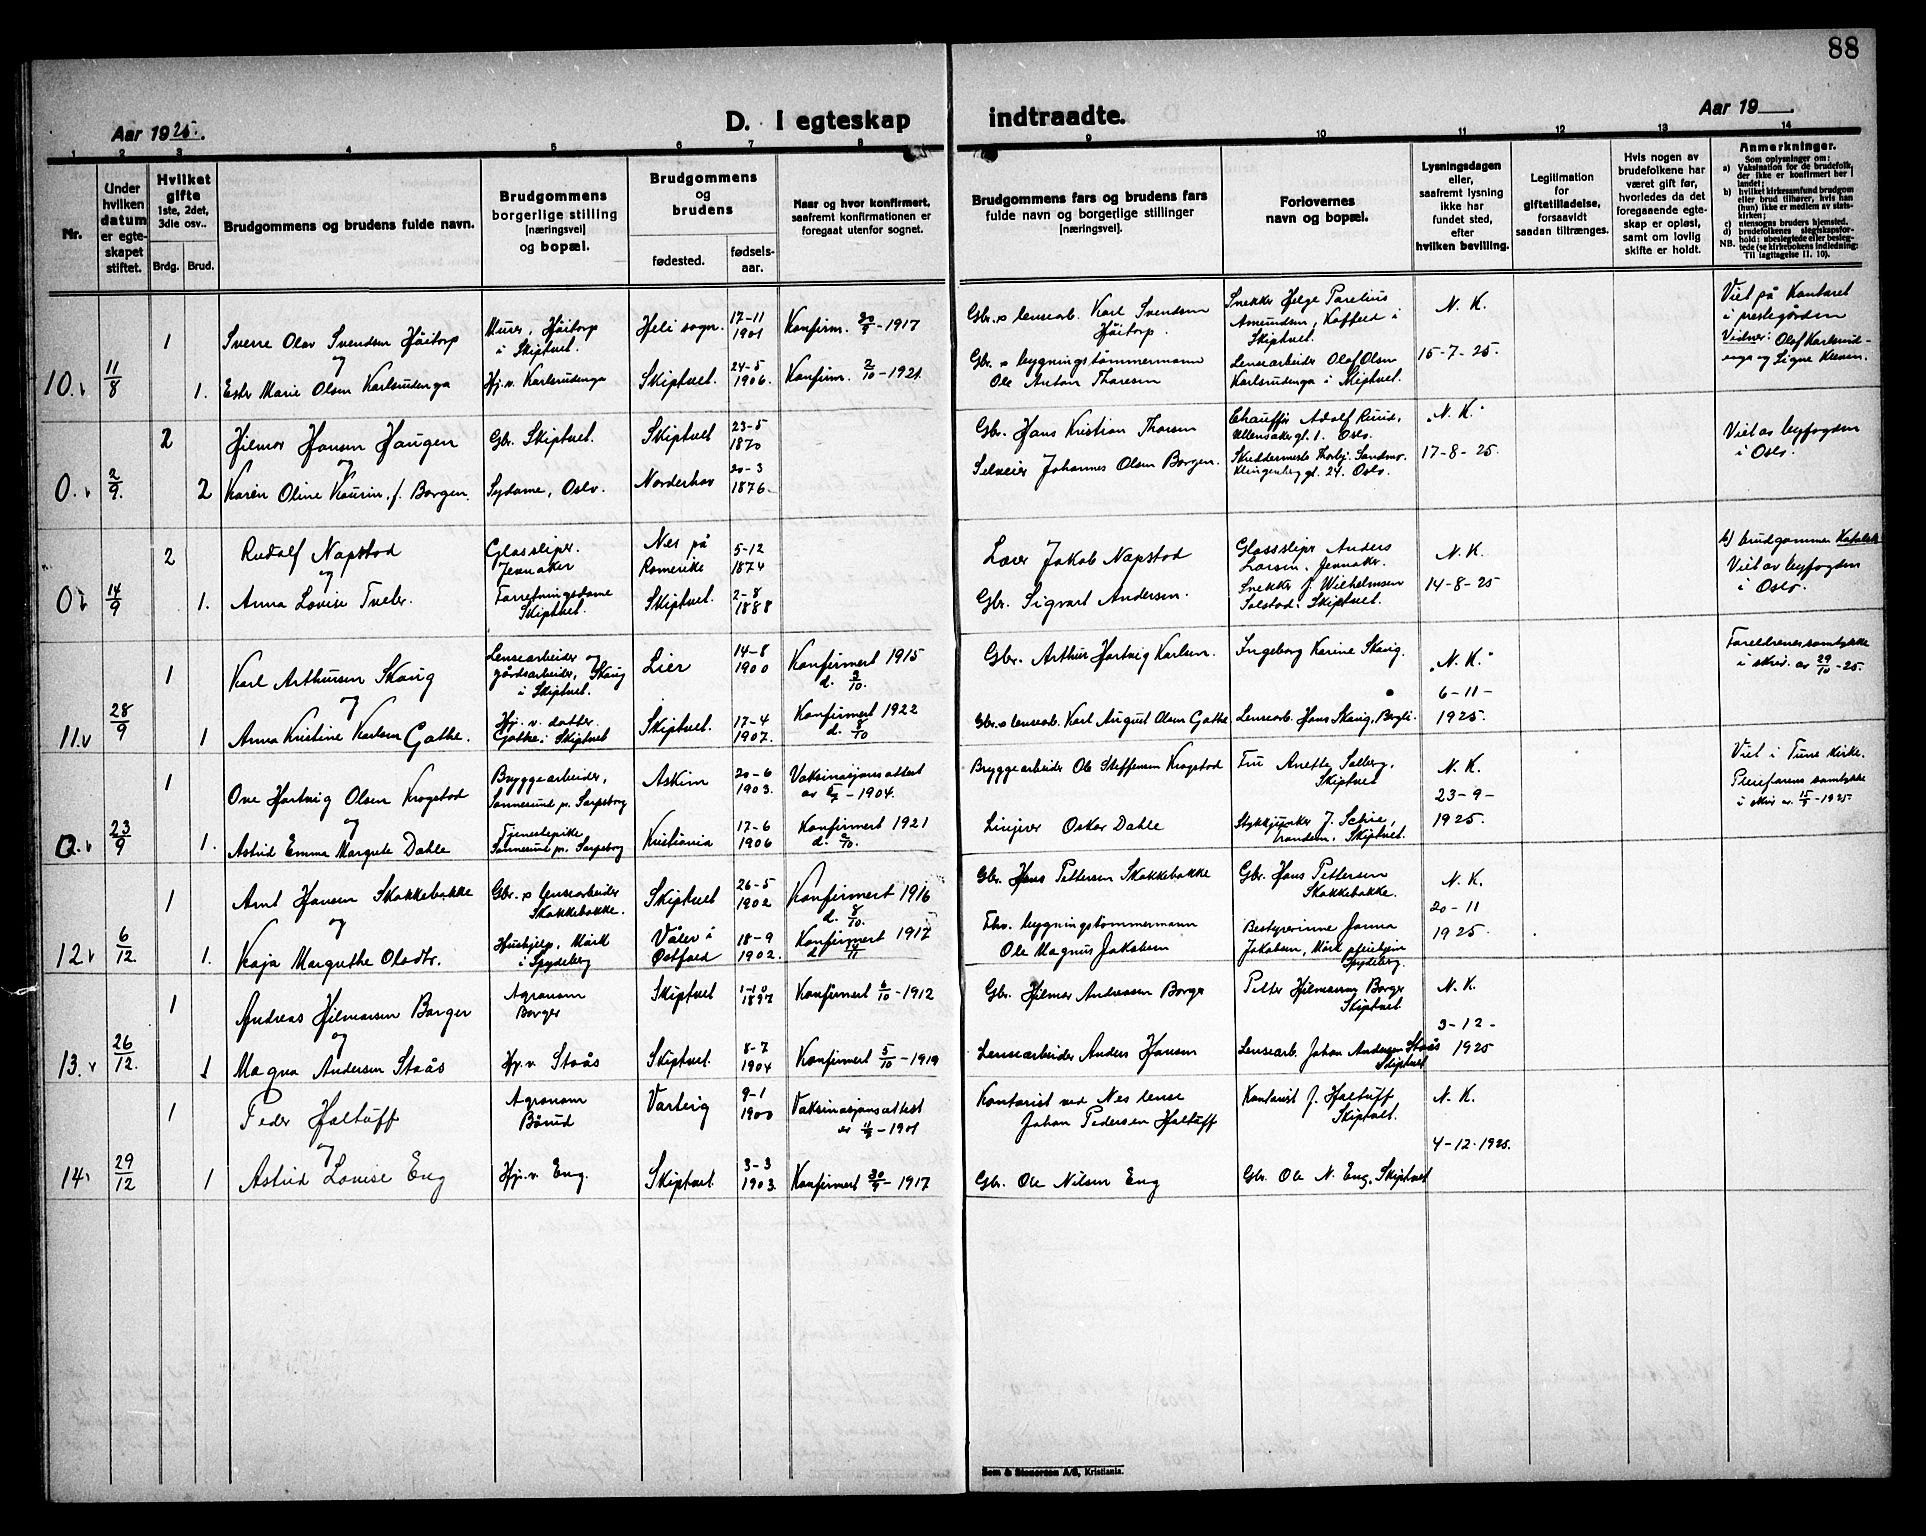 88
Aar 1925.
D. I egteskap indtraadte.
Aar 19
1 2 3 4 5 6 7 8 9 10 11 12 13 14
Nr.
Under hvilken datum er egteskapet stiftet.
Hvilket gifte 1ste, 2det, 3die osv..
Brdg. Brud.
Brudgommens og brudens fulde navn.
Brudgommens borgerlige stilling [næringsvei] og bopæl.
Brudgommens og brudens
fødested. fødselsaar.
Naar og hvor konfirmert, saafremt konfirmationen er foregaat utenfor sognet.
Brudgommens fars og brudens fars fulde navn og borgerlige stillinger [næringsvei].
Forlovernes navn og bopæl.
Lysningsdagen eller, saafremt lysning ikke har fundet sted, efter hvilken bevilling.
Legitimation for giftetilladelse, forsaavidt saadan tiltrænges.
Hvis nogen av brudefolkene har været gift før, hvorledes da det foregaaende egteskap er opløst, samt om lovlig skifte er holdt.
Anmerkninger.
Som oplysninger om:
a) Vaksination for de brudefolk, der ikke er konfirmert her i landet;
b) hvilket kirkesamfund brudgom eller brud tilhører, hvis han (hun) ikke er medlem av statskirken;
c) utensogns bruders hjemsted.
d) brudefolkenes slegtskapsforhold: ubeslegtede eller beslegtede (se kirkebokens indledning: Til iagttagelse II. 10).
NB.
1 Sverre Olav Svendsen Häitorp Murer, Häitorp i Skiptvet. Heli sogn. 17-11 1901 Konfirm. 30/9-1917 Gbr. o lensearb. Karl Svendsen Häitorp. Snekker Helge Parelius Amundsen, Kaffeld i Skiptvet. N. K. Viet på Kontoret i prestegården
og
10. 11/8 1. Ester Marie Olsen Karlsrudenga Hj. v. Karlsrudenga Skiptvet 24-5 1906. Konfirm. 2/10-1921. Gbr. o bygningstömmermann Ole Anton Thoresen Lensearbeider Olaf Olsen Karlsrudenga i Skiptvet. 15-7-25. Vidner: Olaf Karlsrudenga og Signe
2 Hilmar Hansen Haugen Gbr. Skiptvet. Skiptvet 23-5 1870 Gbr. Hans Kristian Thorsen Chauffør Adolf Ruud, Ullensakergt. 1. Oslo. "N. K." Viet av byfogden i Oslo.
og
0. 2/9. 2 Karen Oline Kaurin, f. Borgen. Sydame, Oslo. Norderhov 20-3 1876. Selveier Johannes Olsen Borgen. Skreddermester Thorbj. Sandmo. Klingenberg gt. 24. Oslo. 17-8-25.
2 Rudolf Napstad Glassliper. Jevnaker Nes på Romerike 5-12 1874 Lærer Jakob Napstad Glassliper Anders Larsen, Jevnaker. N. K. b) brudgommen Katolik
og
0 14/9 1. Anna Lovise Tveter. Forretningsdame Skiptvet. Skiptvet. 2-8 1888 Gbr. Sigvart Andersen. Snekker J. Wilhelmsen Solstad. Skiptvet. 14-8-25 Viet av byfogden i Oslo.
1 Karl Arthursen Skaug Lensearbeider og gårdsarbeider, Skaug i Skiptvet. Lier 14-8 1900 Konfirmert 1915 d. 3/10. Gbr. Arthur Hartvig Karlsen. Ingeborg Karine Skaug. "N. K." Foreldrenes samtykke i skriv. av 29/10-25.
og
11. 28/9 1 Anna Kristine Karlsen Gathe. Hj. v. datter. Gathe i Skiptvet Skiptvet. 17-4 1907. Konfirmert 1922 d. 8/10. Gbr. o lensearb. Karl August Olsen Gathe Lensearb. Hans Skaug, 6-11-1925.
1 Ove Hartvig Olsen Krogstad Bryggearbeider, Sannesund pr. Sarpsborg Askim 20-6 1903. Vaksinasjonsattest av 5/7-1904. Bryggearbeider Ole Steffensen Krogstad Fru Anette Solberg, Skiptvet N. K. Viet i Tune kirke.
og
0. 23/9 1. Astrid Emma Margrete Dahle Tjenestepike Sannesund pr. Sarpsborg Kristiania 17-6 1906 Konfirmert 1921 d. 2/10. Linjeier Oskar Dahle Stykkjunker J. Schie, Skiptvet. 23-9-1925. Pleiefarens samtykke i skriv av 15/9-1925.
1 Arnt Hansen Skakkebakke Gbr. o lensearbeider Skakkebakke. Skiptvet 26-5 1902 Konfirmert 1916 d. 8/10. Gbr. Hans Pettersen Skakkebakke Gbr. Hans Pettersen Skakkebakke. N. K.
og
12 6/12. 1. Kaja Margrethe Olsdtr. Hushjelp, Mörk i Spydeberg Våler i Østfold 18-9 1902. Konfirmert 1917 d. 11/11 Fhv. bygningstømmermann Ole Magnus Jakobsen Bestyrerinne Janna Jakobsen, Mörk pleiehjem Spydeberg. 20-11 1925.
1 Andreas Hilmarsen Borger Agronom Borger Skiptvet 1-10 1897 Konfirmert 6/10-1912 Gbr. Hilmar Andreassen Borger Petter Hilmarsen Borger Skiptvet. N. K.
og
13. 26/12. 1 Magna Andersen Staås Hj. v. Staås Skiptvet. 8-7 1904 Konfirmert 5/10-1919 Lensearbeider Anders Hansen Lensearb. Johan Andersen Staås Skiptvet 3-12-1925
1 Peder Holtuff Agronom Bönud Varteig 9-1 1900 Vaksinasjonsattest av 11/9-1901 Kontorist ved Nes lense Johan Pedersen Holtuff Kontorist J. Holtuff, Skiptvet. N. K.
og
14 29/12 1 Astrid Lovise Eng Hj. v. Eng. Skiptvet. 3-3 1903. Konfirmert 30/9-1917 Gbr. Ole Nilsen Eng Gbr. Ole N. Eng, Skiptvet 4-12-1925.
Sem & Stenersen A/S, Kristiania.